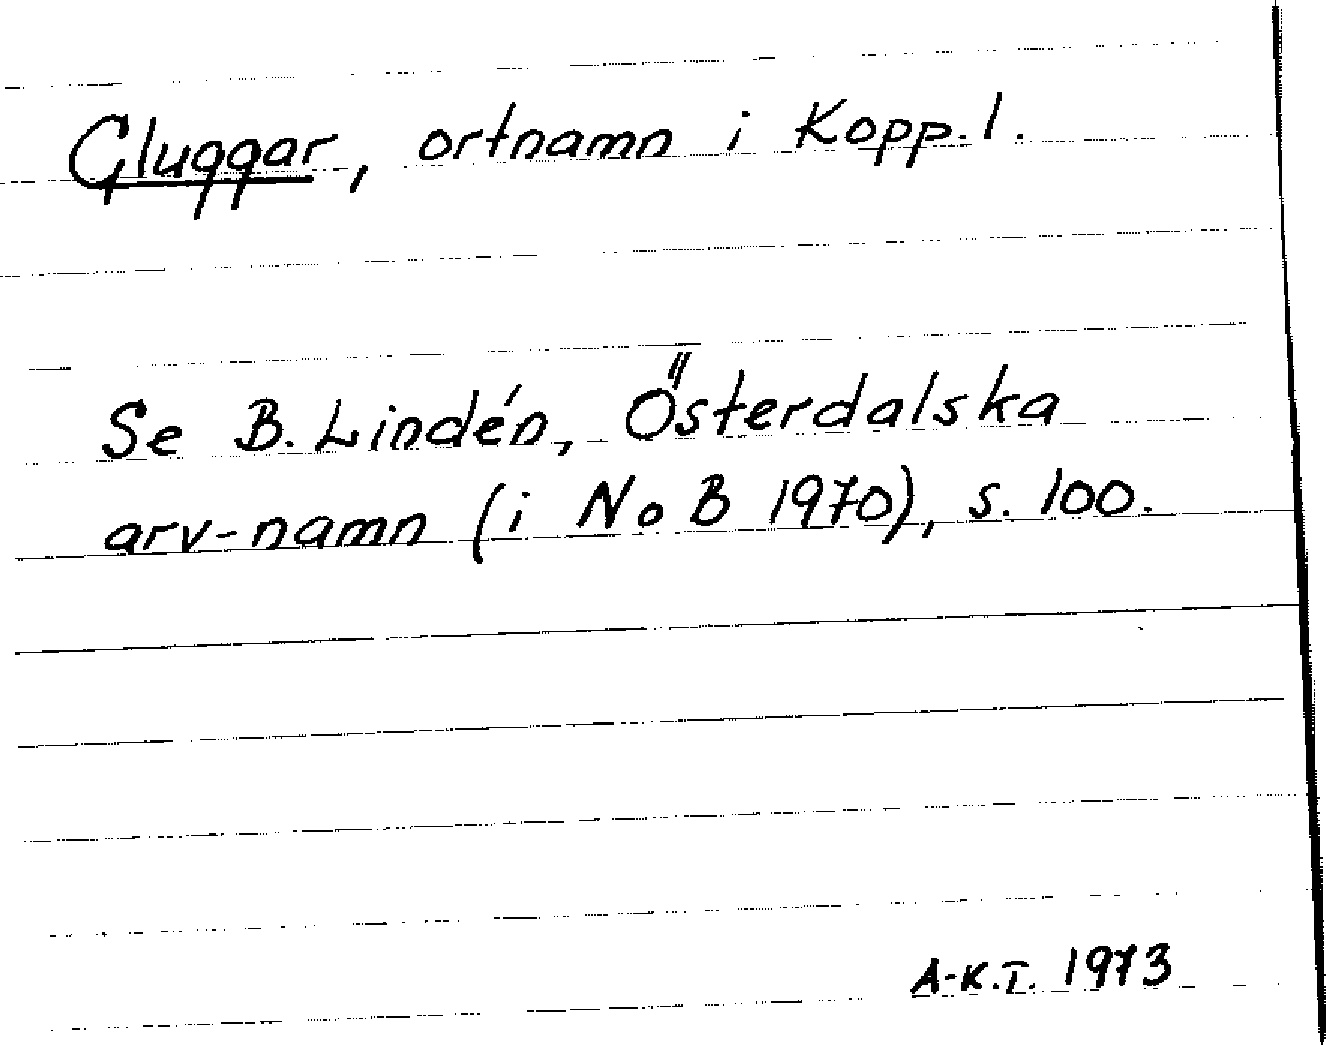 Gluggar, ortnamn i Kopp. l.
Se B. Lindén, Österdalska
arv-namn (i NoB 1970), s. 100.
A-K.T. 1973